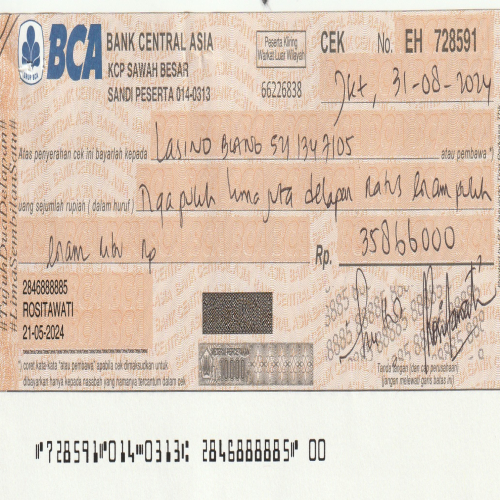 BCA BANK CENTRAL ASIA
KCP SAWAH BESAR
SANDI PESERTA 014-0313
Peserta Kliring
Warkat Luar Wilayah
66226838
CEK No. EH 728591
Jkt, 31-08-2024
Atas penyerahan cek ini bayarlah kepada LASINO BLANG 5211347105 atau pembawa *)
uang sejumlah rupiah ( dalam huruf ) Tiga puluh lima juta delapan Ratus enam puluh
enam ribu Rp
Rp. 35866000
2846888885
ROSITAWATI
21-05-2024
*) coret kata-kata "atau pembawa" apabila cek dimaksudkan untuk
dibayarkan hanya kepada nasabah yang namanya tercantum dalam cek
Tanda tangan (dan cap perusahaan)
(jangan melewati garis batas ini)
728591 014 0313 2846888885 00